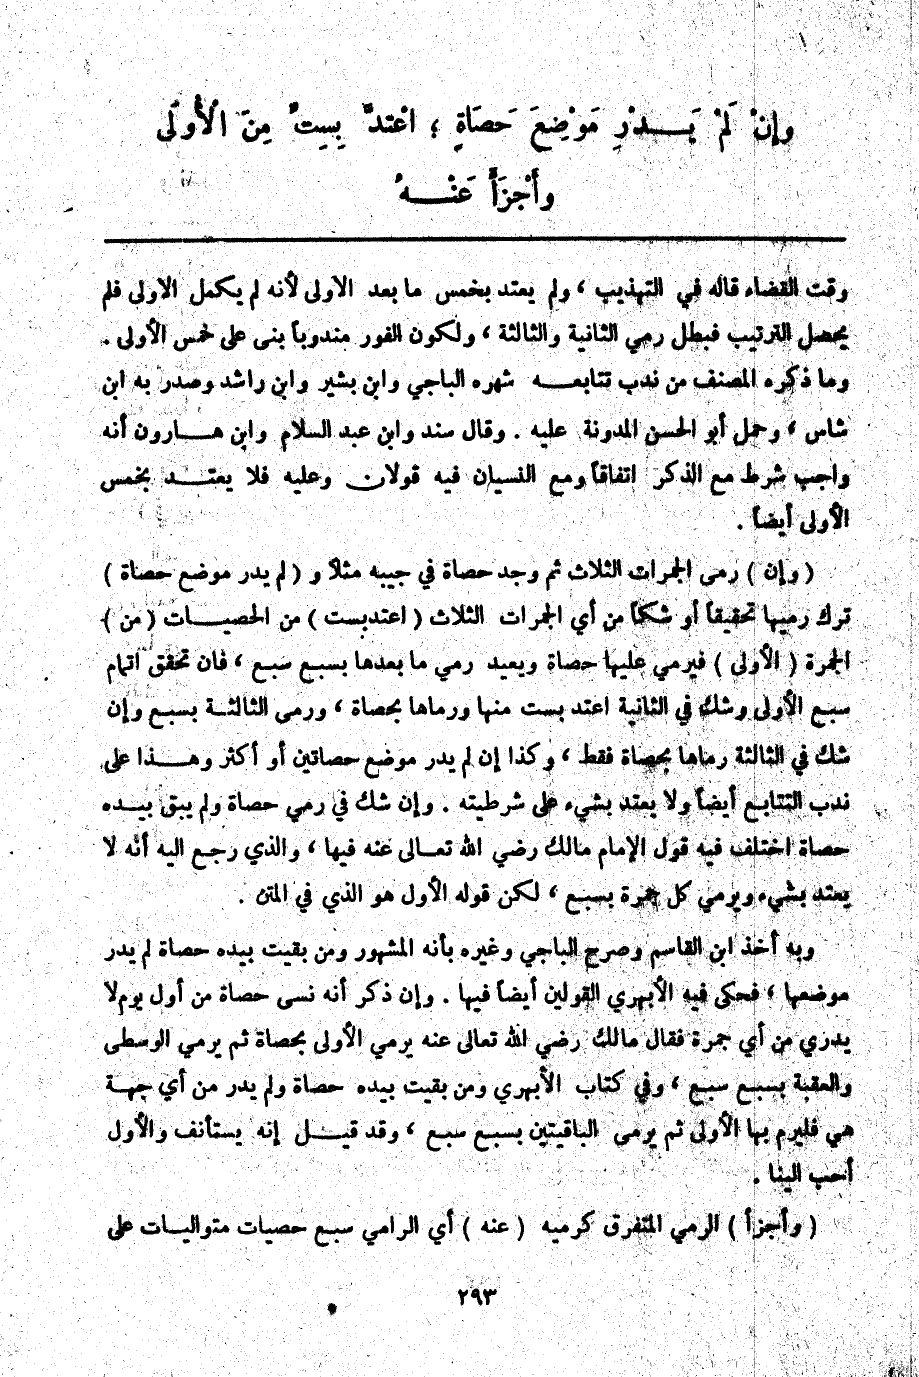 وإنْ لَمْ يَـــدْرِ مَوْضِعَ حَصَاةٍ ؛ اعْتدَّ بِسِتٍّ مِنَ الْأُولَى
وأَجْزَأَ عَنْـــهُ
وقت القضاء قاله في التهذيب ، ولم يعتد بخمس ما بعد الاولى لأنه لم يكمل الاولى فلم
يحصل الترتيب فبطل رمي الثانية والثالثة ، ولكون الفور مندوباً بنى على خمس الأولى .
وما ذكره المصنف من ندب تتابعـــه شهره الباجي وابن بشير وابن راشد وصدر به ابن
شاس ، وحمل أبو الحسن المدونة عليه . وقال سند وابن عبد السلام وابن هـــارون أنه
واجب شرط مع الذكر اتفاقاً ومع النسيان فيه قولان وعليه فلا يعتـــد بخمس
الأولى أيضاً .
( وإن ) رمى الجمرات الثلاث ثم وجد حصاة في جيبه مثلاً و ( لم يدر موضع حصاة )
ترك رميها تحقيقاً أو شكاً من أي الجمرات الثلاث ( اعتد بست ) من الحصيـــات ( من )
الجمرة ( الأولى ) فيرمي عليها حصاة ويعيد رمي ما بعدها بسبع سبع ، فان تحقق اتمام
سبع الأولى وشك في الثانية اعتد بست منها ورماها بحصاة ، ورمى الثالثـة بسبع وإن
شك في الثالثة رماها بحصاة فقط ، وكذا إن لم يدر موضع حصاتين أو أكثر وهـــذا على
ندب التتابع أيضاً ولا يعتد بشيء على شرطيته . وإن شك في رمي حصاة ولم يبق بيـــده
حصاة اختلف فيه قول الإمام مالك رضي الله تعـالى عنه فيها ، والذي رجـع اليه أنه لا
يعتد بشيء ويرمي كل جمرة بسبع ، لكن قوله الأول هو الذي في المتن .
وبه أخذ ابن القاسم وصرح الباجي وغيره بأنه المشهور ومن بقيت بيده حصاة لم يدر
موضعها ، فحكى فيه الأبهري القولين أيضاً فيها . وإن ذكر أنه نسى حصاة من أول يوم لا
يدري من أي جمرة فقال مالك رضي الله تعالى عنه يرمي الأولى بحصاة ثم يرمي الوسطى
والعقبة بسبـع سبـع ، وفي كتاب الأبهري ومن بقيت بيده حصاة ولم يدر من أي جهـة
هي فليرم بها الأولى ثم يرمى الباقيتين بسبـع سبـع ، وقد قيـــل إنه يستأنف والأول
أحب الينا .
( وأجزأ ) الرمي المتفرق كرميه ( عنه ) أي الرامي سبـع حصيات متواليـات على
٢٩٣